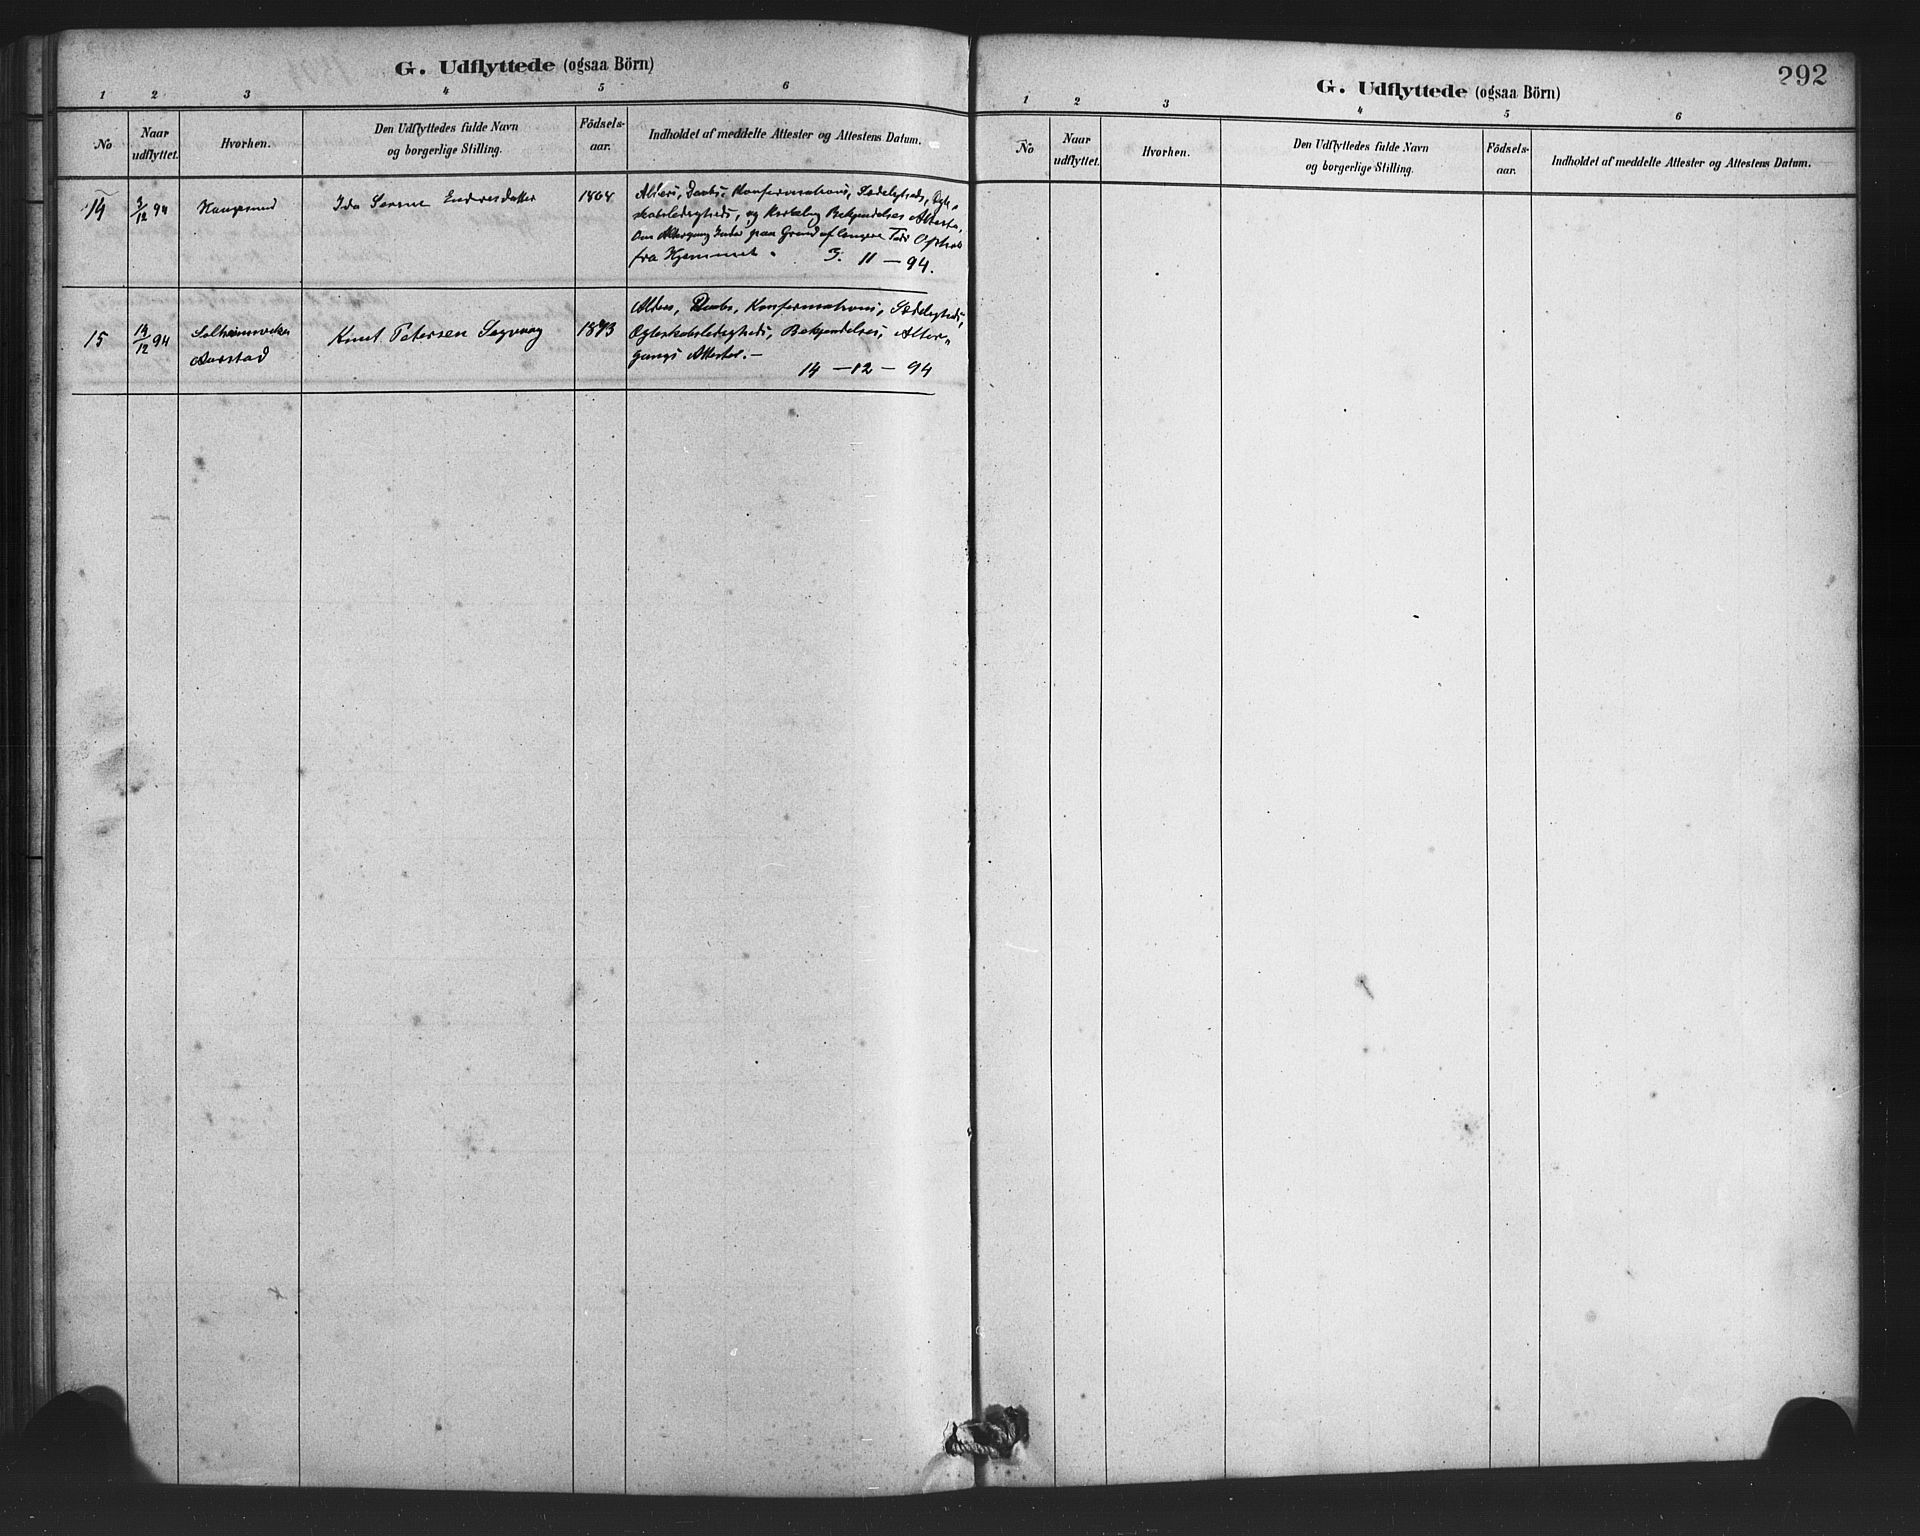 G. Udflyttede (ogsaa Börn)
1 2 3 4 5 6
No
Naar udflyttet.
Hvorhen.
Den Udflyttedes fulde Navn
og borgerlige Stilling.
Födsels-
aar.
Indholdet af meddelte Attester og Attestens Datum.
14
3/12 94
Haugesund
Ida Serine Endresdatter
1868
Alders, Daabs, Konfirmations, Sædeligheds, Egte-
skabsledigheds, og Bekjendelses Attester,
Om Altergang Intet paa Grund af længere Tids Ophold
fra Hjemmet. 3. 11 — 94.
15
14/12 94
Aarstad
Knut Petersen Sagvaag
1873
Alders, Daabs, Konfirmations, Sædeligheds,
Egteskabsledigheds, Bekjendelses, Alter-
gangs Attester. —
14 — 12 — 94
292
G. Udflyttede (ogsaa Börn)
1 2 3 4 5 6
No
Naar
udflyttet.
Hvorhen.
Den Udflyttedes fulde Navn
og borgerlige Stilling.
Födsels-
aar.
Indholdet af meddelte Attester og Attestens Datum.